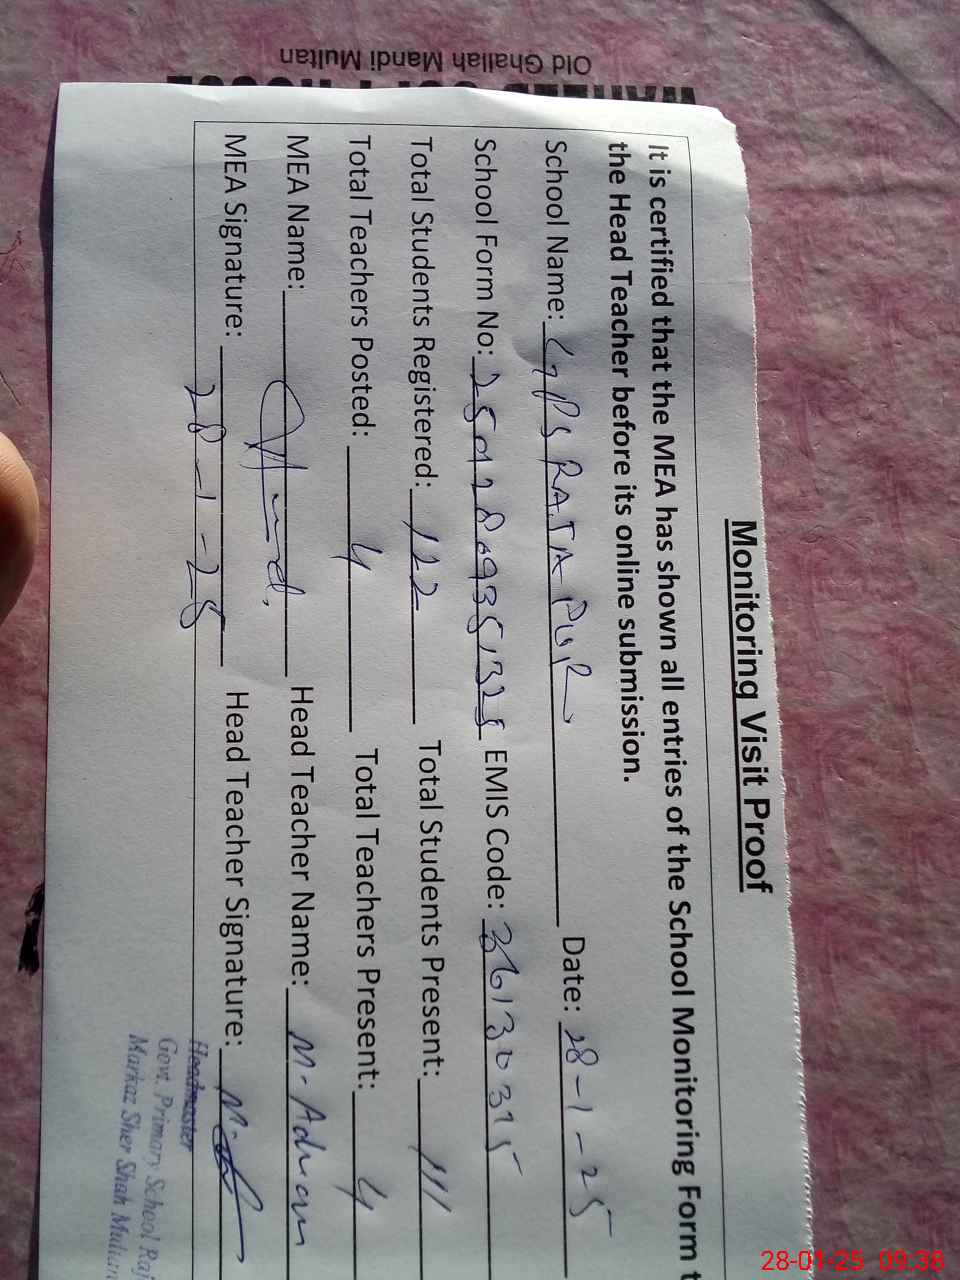 Old Ghallah Mandi Multan
Monitoring Visit Proof
It is certified that the MEA has shown all entries of the School Monitoring Form t
the Head Teacher before its online submission.
School Name: GPS RAJA PUR Date: 28-1-25
School Form No: EMIS Code: 36130315
Total Students Registered: 122 Total Students Present: 111
Total Teachers Posted: 4 Total Teachers Present: 4
MEA Name: Head Teacher Name: M. Adnan
MEA Signature: Head Teacher Signature:
28-1-25
Headmaster
Govt. Primary School Raj
Markaz Sher Shah Multan
28-01-25 09:38